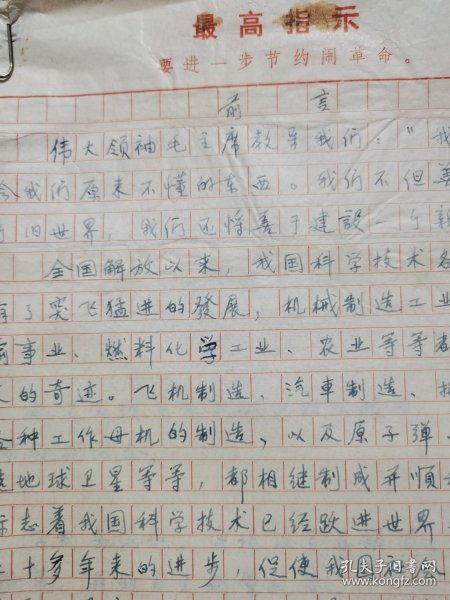 最高指示
要进一步节约闹革命。
前言
伟大领袖毛主席教导我们："我
会我们原来不懂的东西。我们不但善
旧世界，我们还将善于建設一个新
全国解放以来，我国科学技术各
有了突飞猛进的發展，机械制造工业
事业、燃料化学工业、农业等等者
的奇迹。飞机制造、汽車制造、
各种工作母机的制造、以及原子弹、
地球卫星等等，都相继制成并順
标志着我国科学技术已经跃进世界
二十多年来的进步，促使我国在
孔夫子旧书网
book.kongfz.com